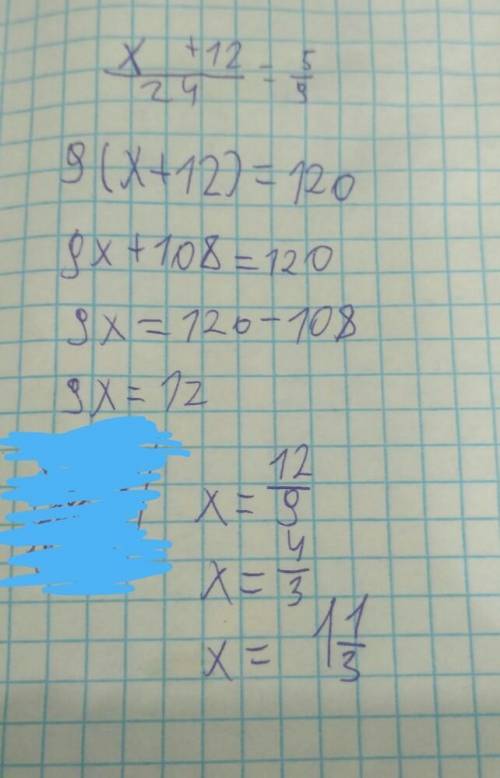 x +12 / 24 = 5/9
9(x+12)=120
9x+108=120
9x=120-108
9x=12
x=12/9
x=4/3
x= 1 1/3